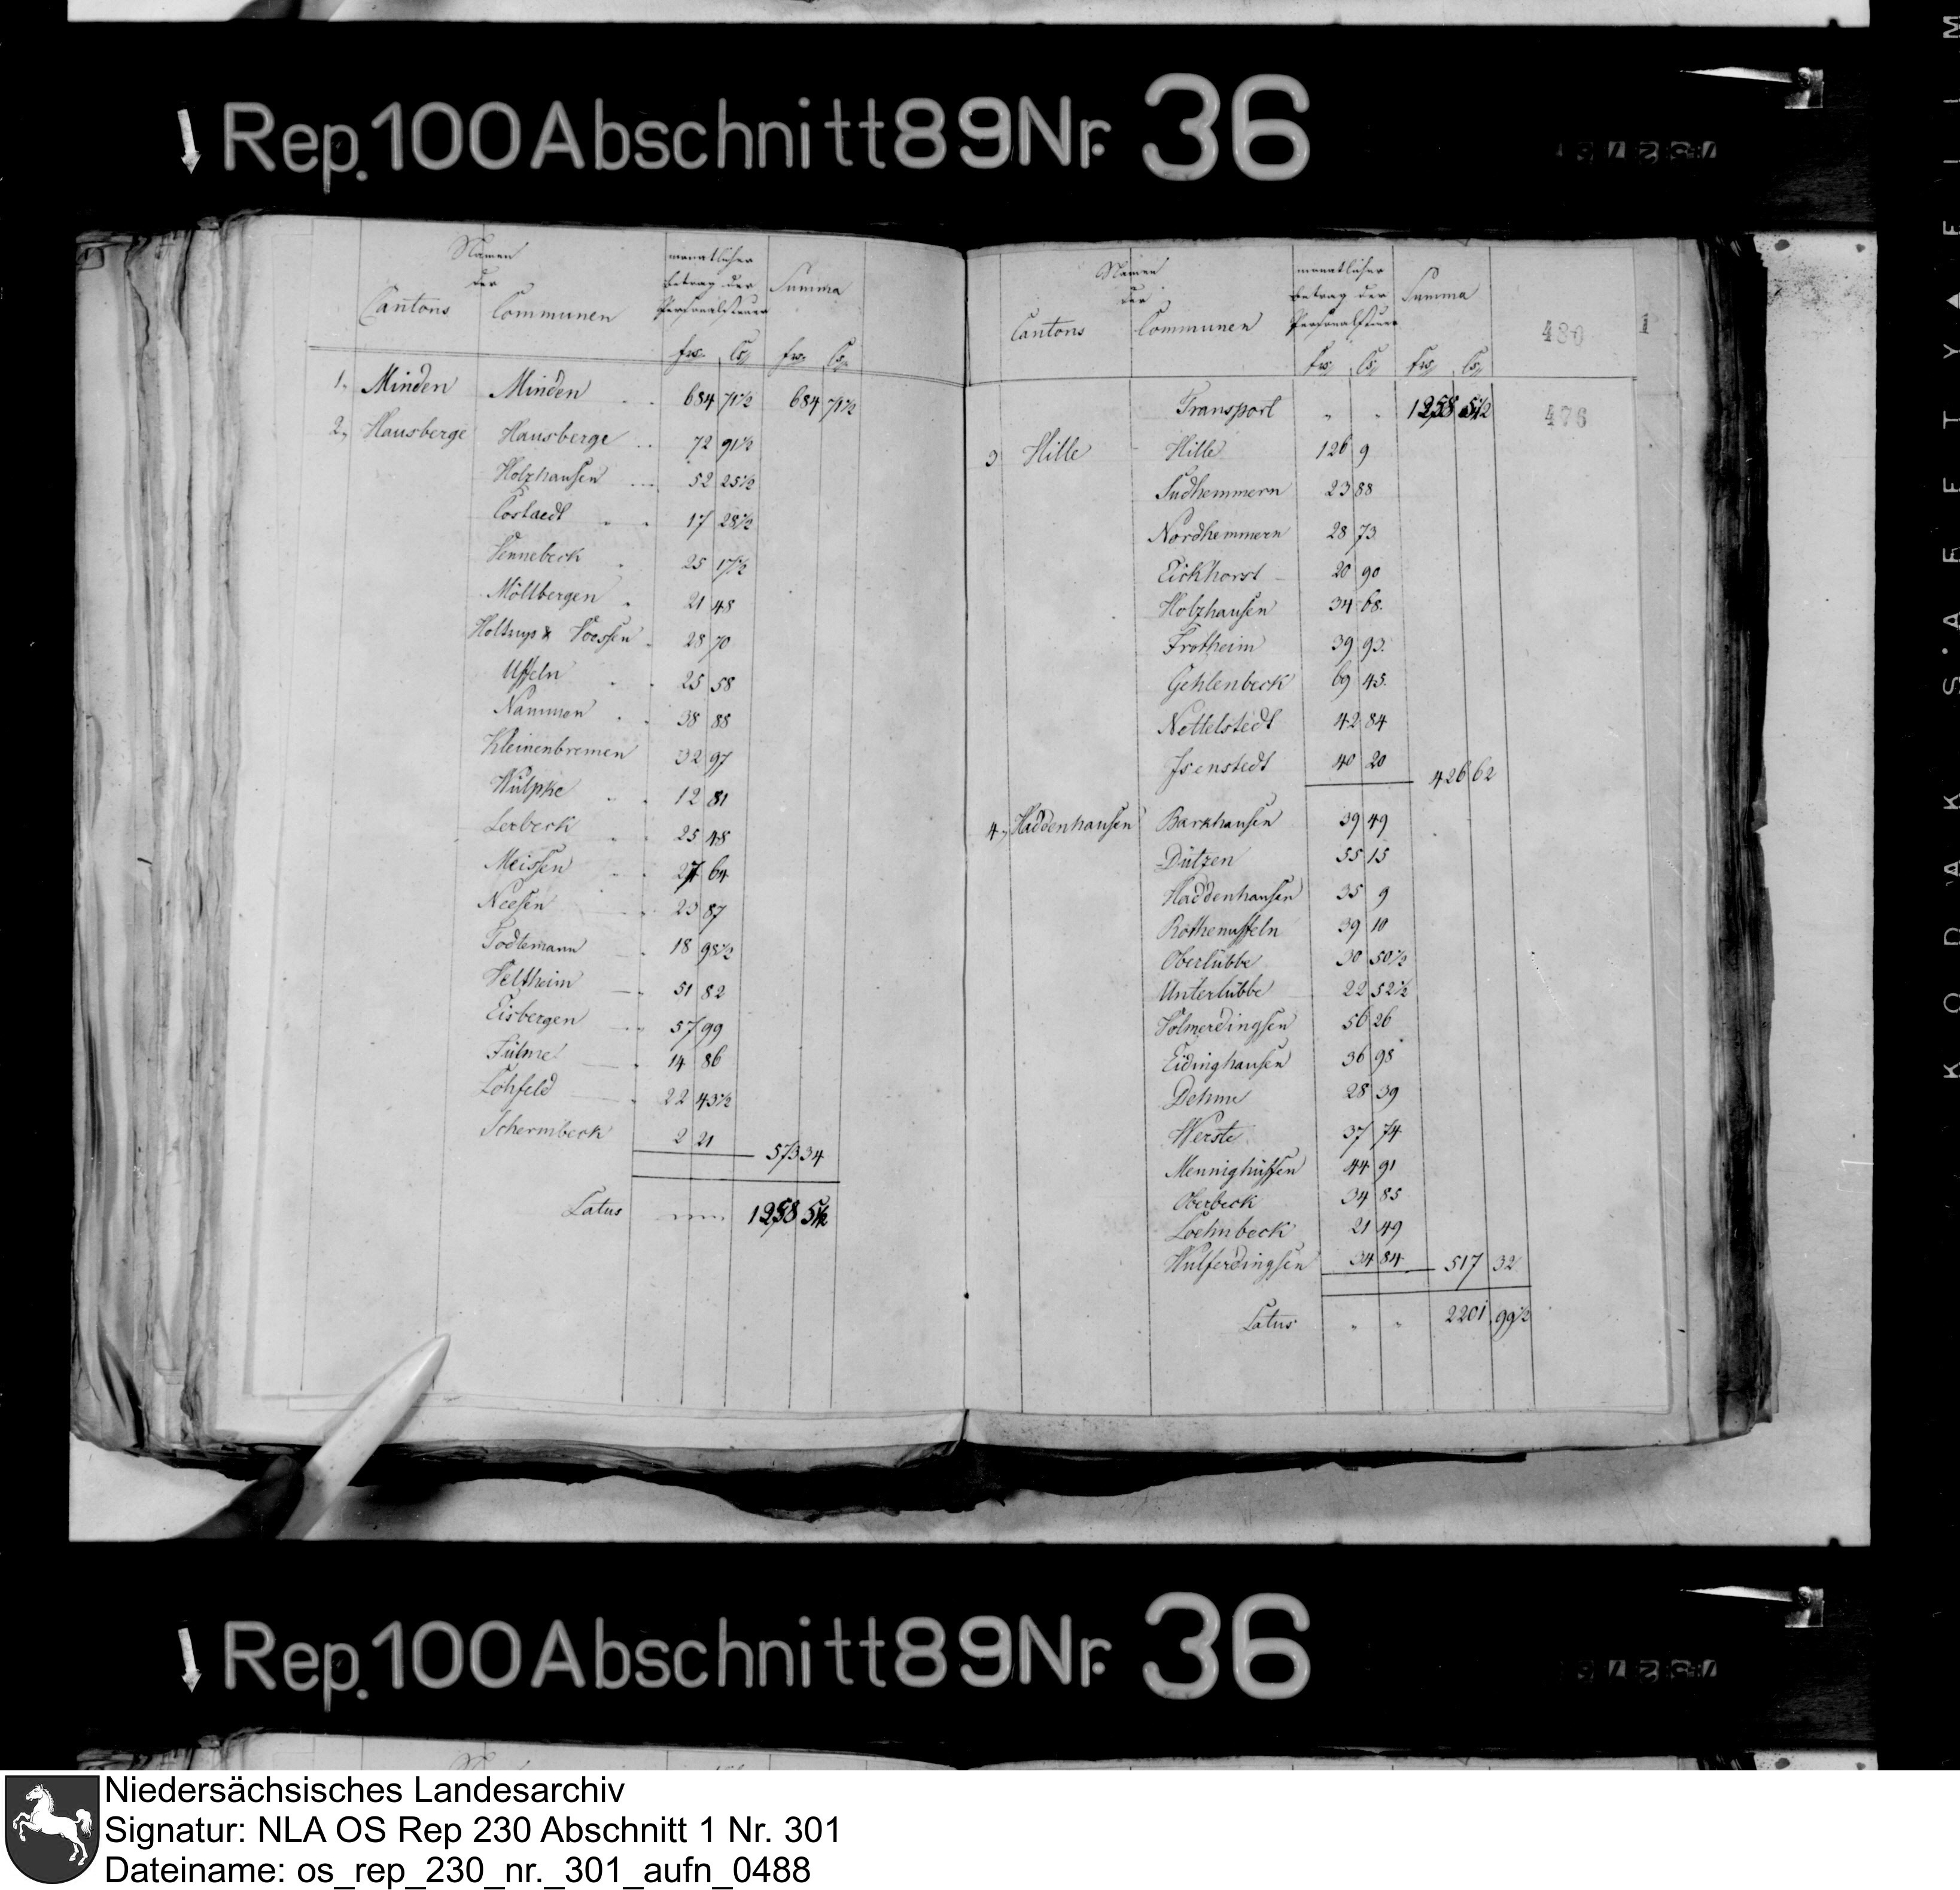 Rep. 100 Abschnitt 89 Nr. 36
Namen der Cantons Communen monatlicher Betrag der Personalsteuer Summa
frs. Cs. frs. Cs.
1. Minden Minden 684 71½ 684 71½
2. Hausberge Hausberge 72 91½
Holzhausen 52 25½
Costaedt 17 28½
Vennebeck 25 17½
Möllbergen 21 48
Holtrup & Voessen 28 70
Uffeln 25 58
Nammen 38 88
Kleinenbremen 32 97
Wülpke 12 81
Lerbeck 25 48
Meissen 27 64
Neesen 23 87
Todtemann 18 98½
Veltheim 51 82
Eisbergen 57 99
Fülme 14 86
Lohfeld 22 43½
Schermbeck 2 21 573 34
Latus 1258 5½
Namen der Cantons Communen monatlicher Betrag der Personalsteuer Summa
frs. Cs. frs. Cs.
480
Transport " " 1258 5½
476
3 Hille Hille 126 9
Sudhemmern 23 88
Nordhemmern 28 73
Eickhorst 20 90
Holzhausen 34 68
Frotheim 39 93
Gehlenbeck 69 45
Nettelstedt 42 84
Isenstedt 40 20 426 62
4. Haddenhausen Barkhausen 39 49
Dützen 55 15
Haddenhausen 35 9
Rothenuffeln 39 10
Oberlübbe 30 50½
Unterlübbe 22 52½
Volmerdingsen 56 26
Eidinghausen 36 98
Dehme 28 39
Werste 37 74
Mennighüffen 44 91
Oberbeck 34 85
Loehnbeck 21 49
Wulferdingsen 34 84 517 32
Latus " " 2201 99½
Rep. 100 Abschnitt 89 Nr. 36
KODAK SAFETY FILM
Niedersächsisches Landesarchiv
Signatur: NLA OS Rep 230 Abschnitt 1 Nr. 301
Dateiname: os_rep_230_nr._301_aufn_0488